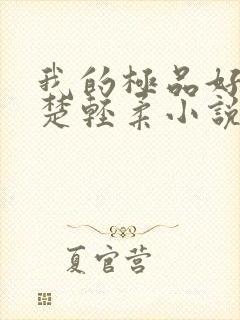 我的極品好
楚輕柔小說
夏官营